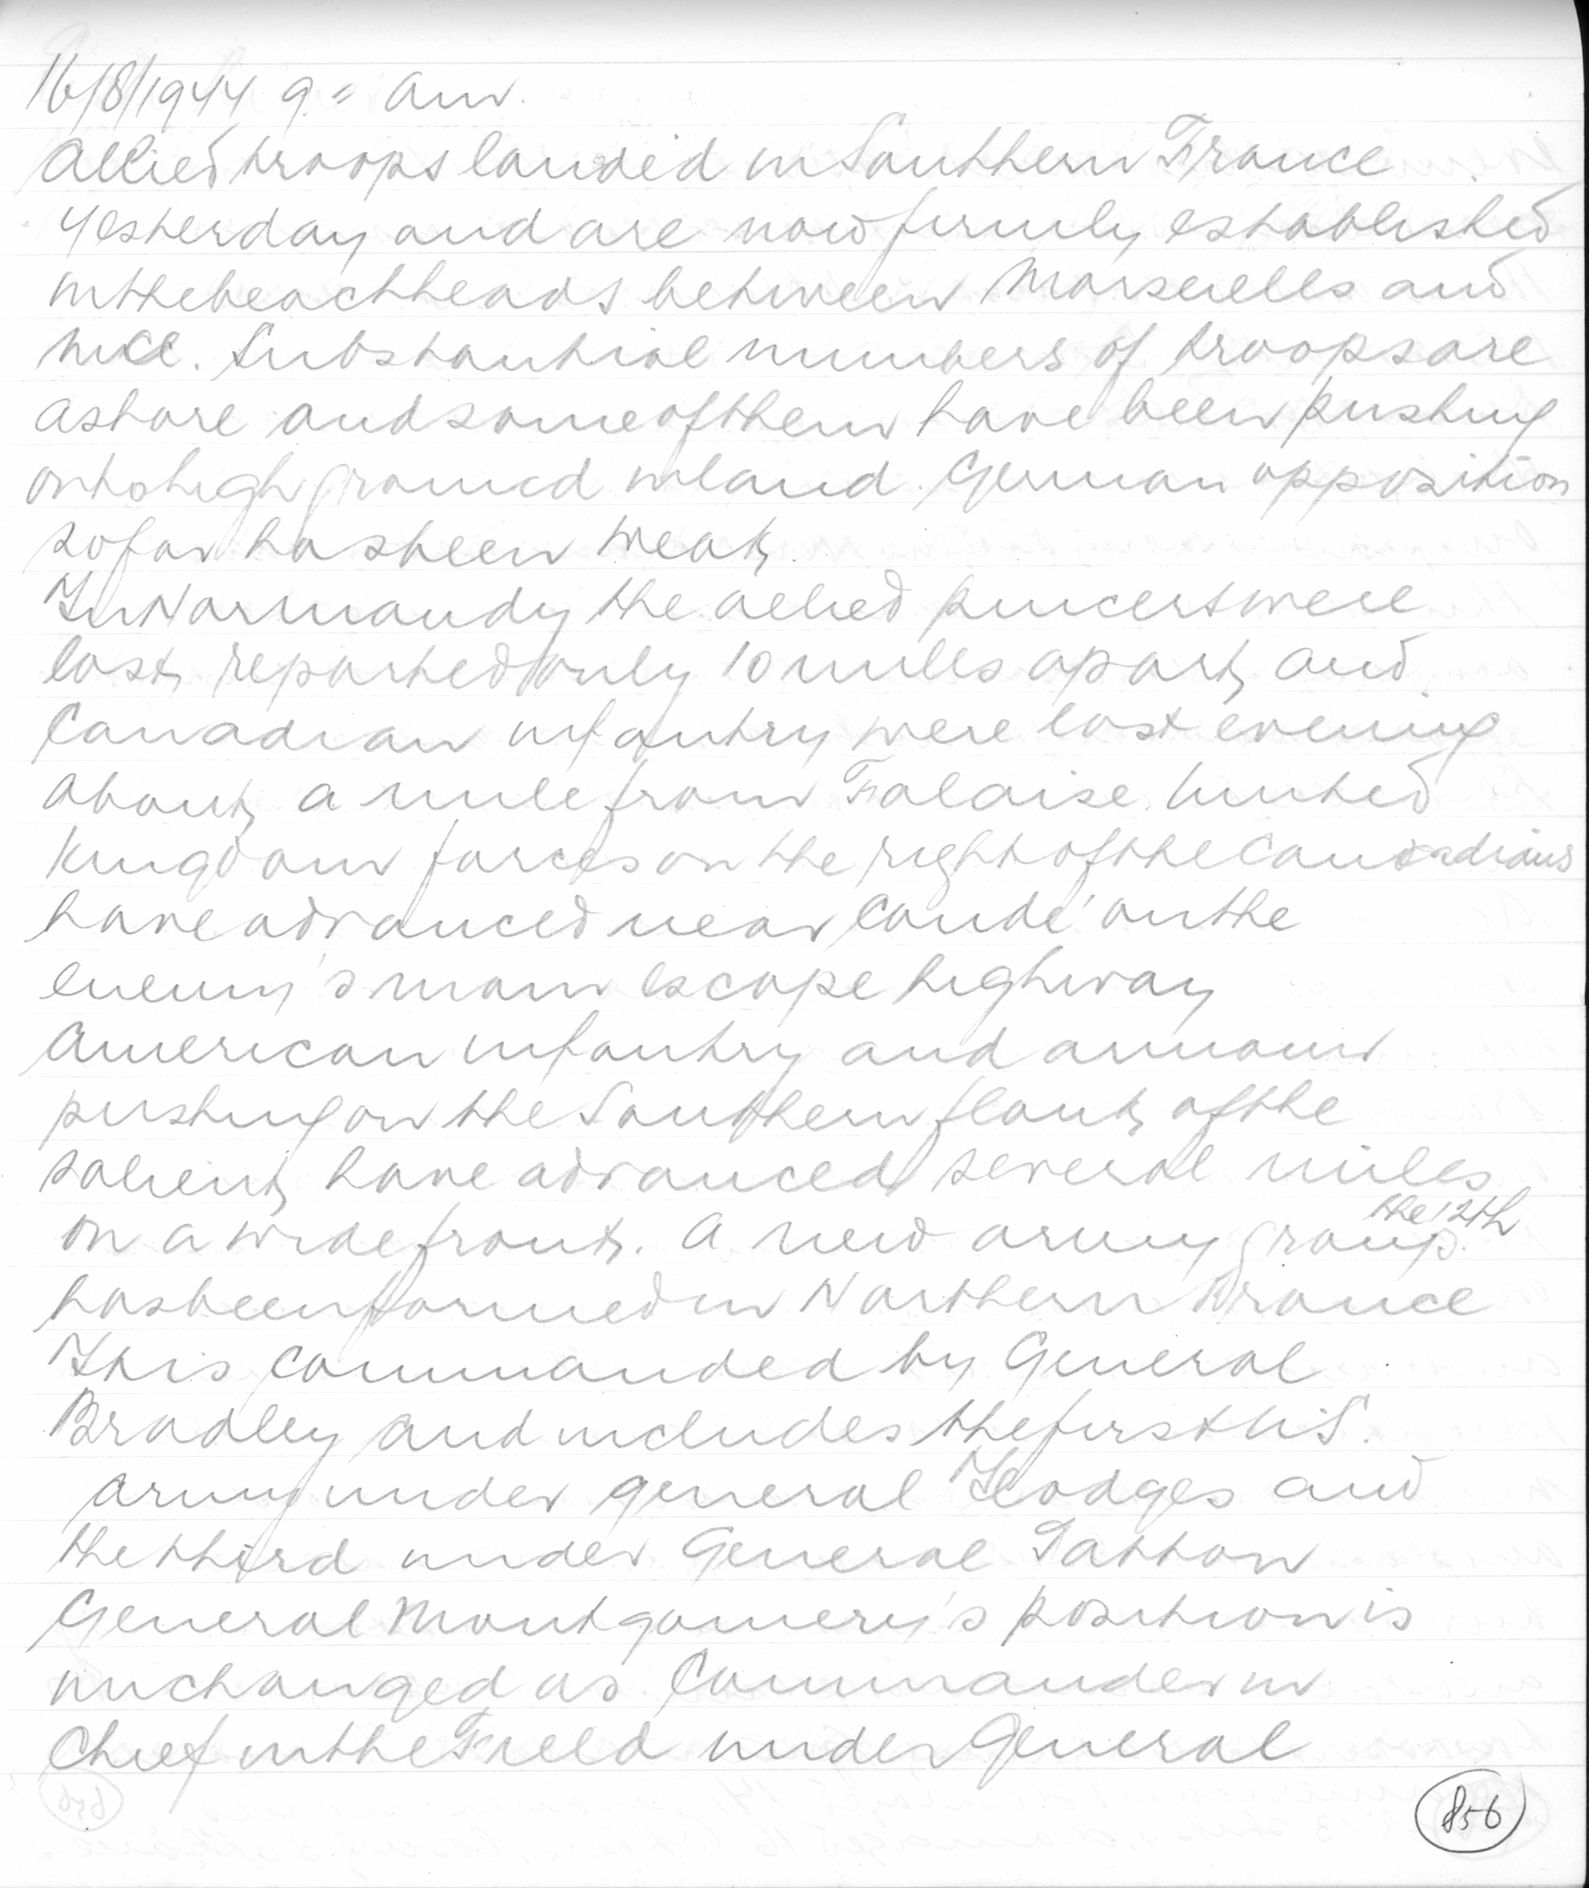 16/8/1944 9 = am.
Allied troops landed in Southern France
yesterday and are now firmly established
in the beachheads between Marseilles and
Nice. Substantial numbers of troops are
ashore and some of them have been pushing
on to high ground inland. German opposition
so far has been weak
In Normandy the allied pincers were
last reported only 10 miles apart and
Canadian infantry were last evening
about a mile from Falaise. United
Kingdom forces on the right of the Canadians
have advanced near Condé on the
enemy's main escape highway
American infantry and armour
pushing on the Southern flank of the
salient have advanced several miles
on a wide front. A new army group the 12th
has been formed in Northern France
It is commanded by General
Bradley and includes the first U.S.
army under general Hodges and
the third under General Patton
General Montgomery's position is
unchanged as Commander in
Chief in the Field under General
856